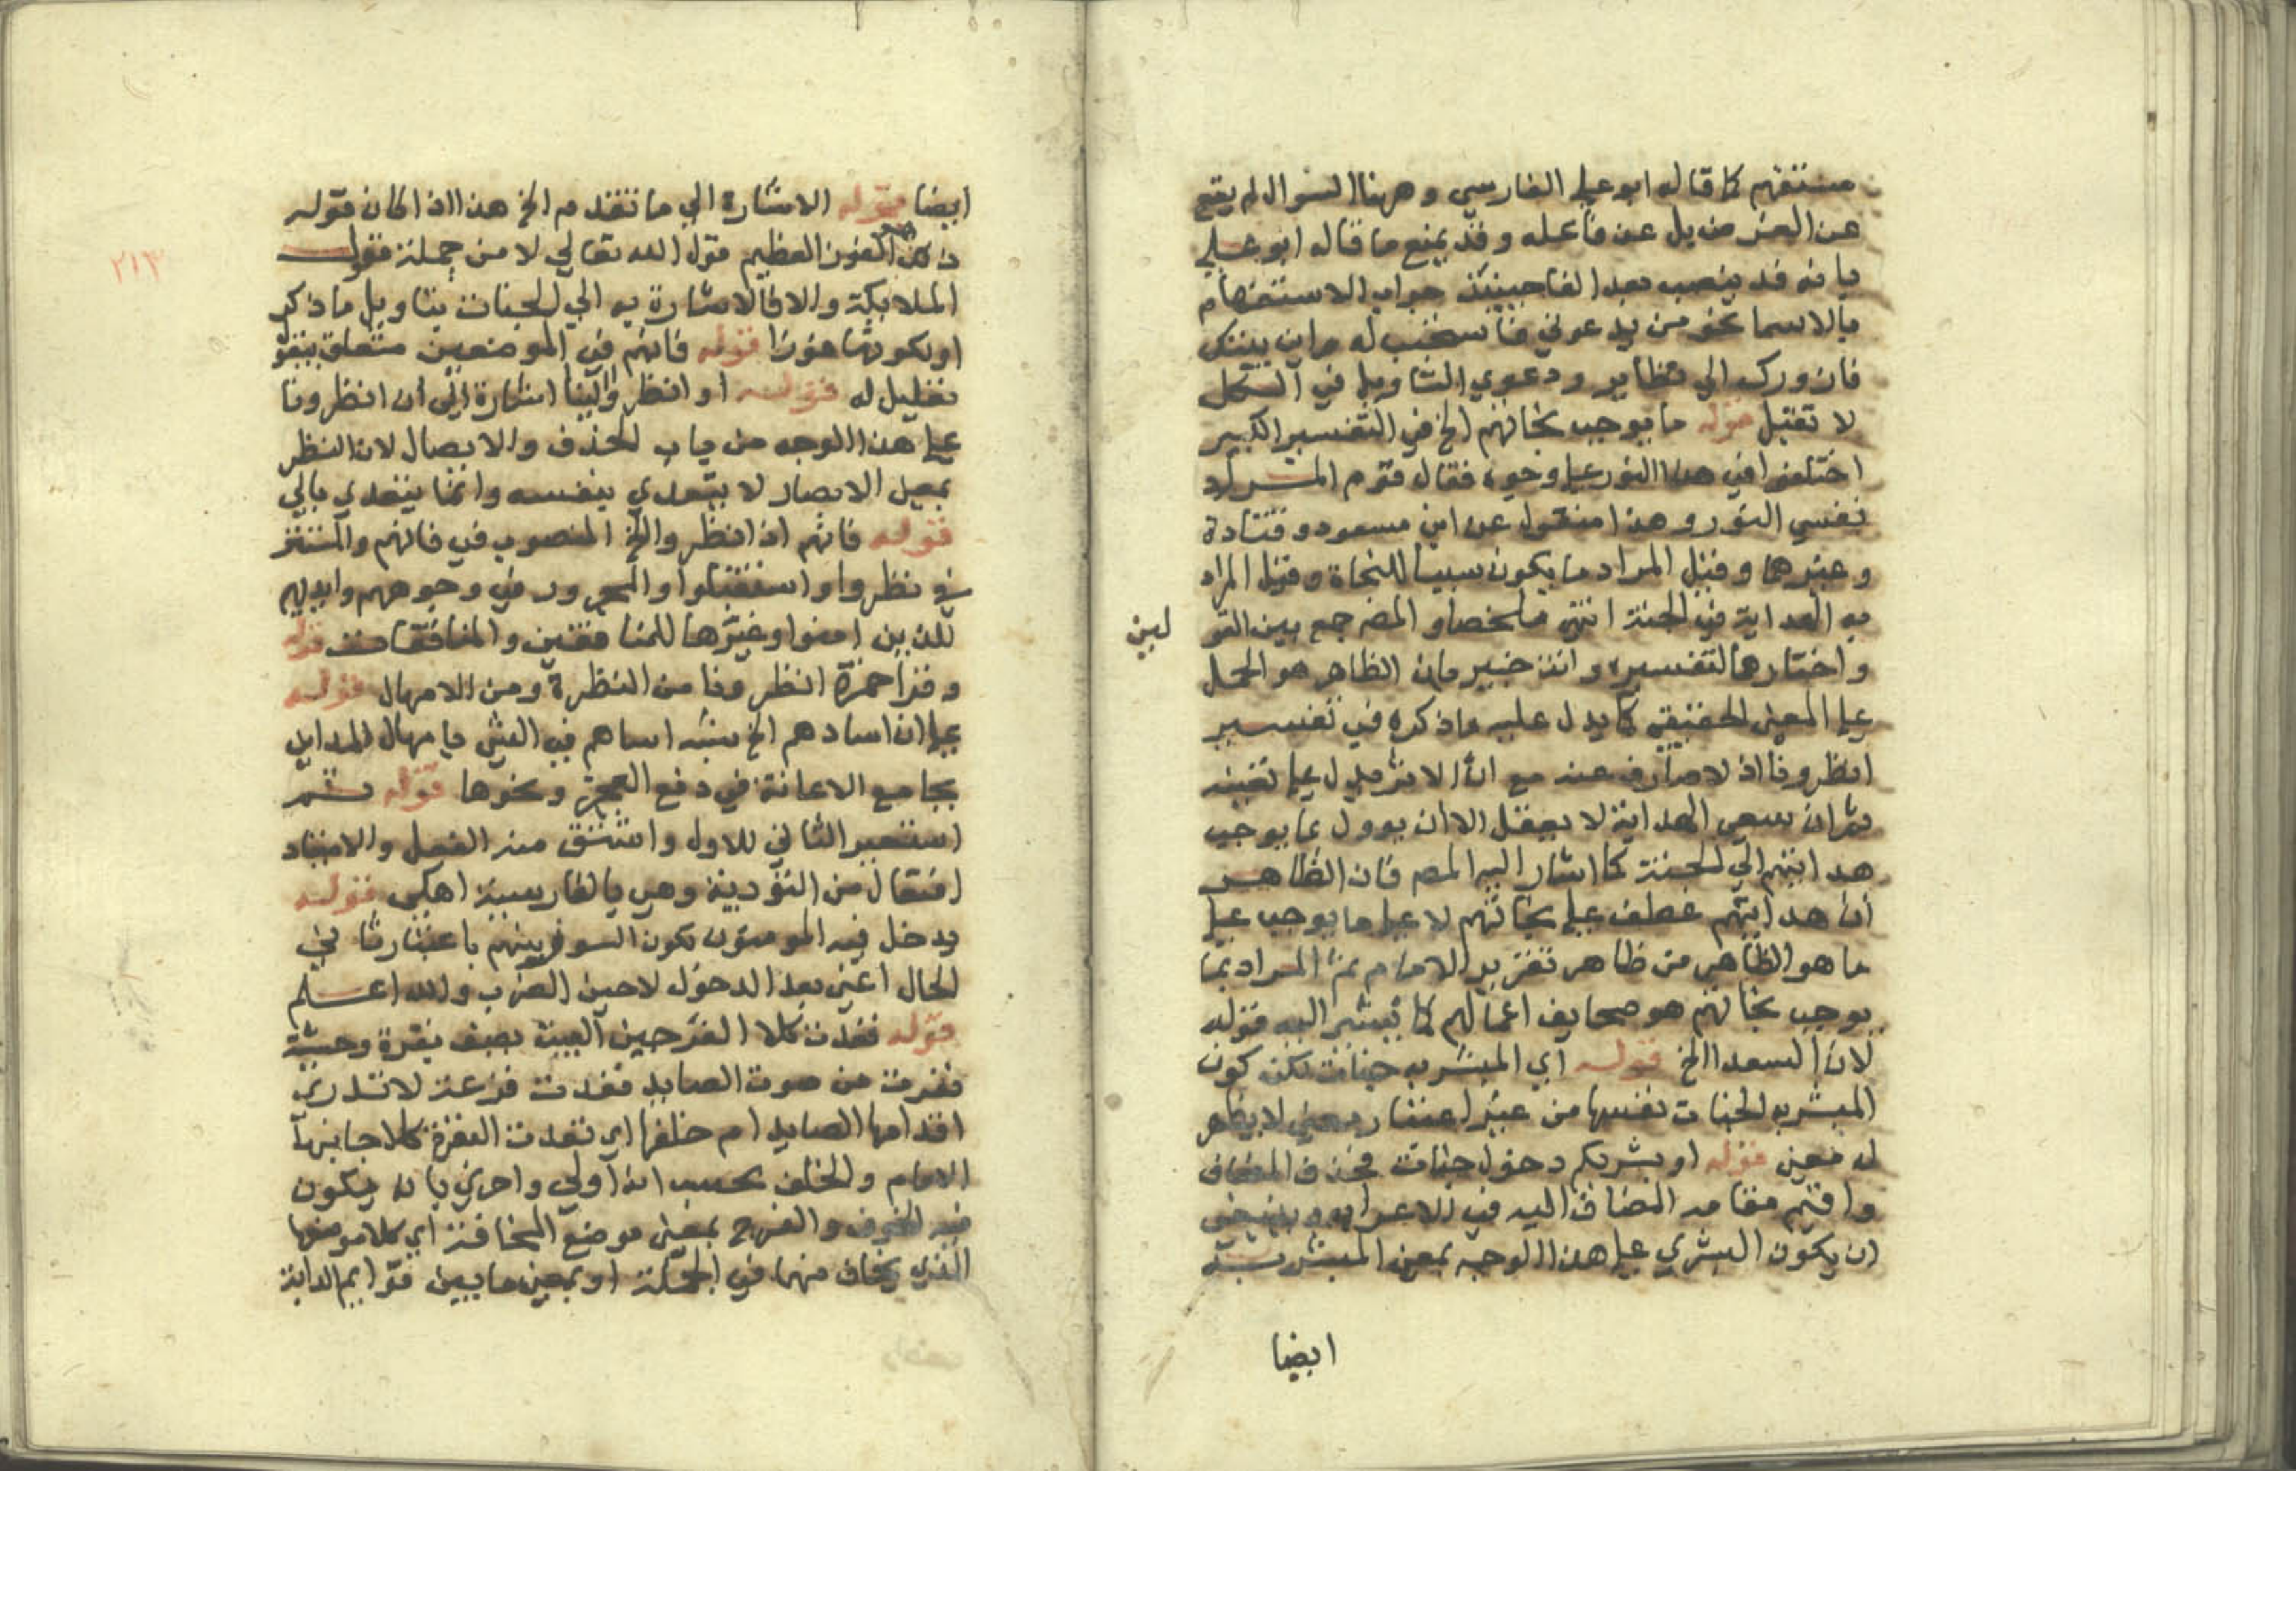 مستفهم كما قال ابو علي الفارسي وههنا السؤال لم يقع
عن القرض بل عن فاعله وقد يمنع ما قاله ابو علي
بانه قد ينصب بعد الفا حينئذ جواب الاستفهام
بالاسما نحو من يدعوني فاستجيب له واين بيتك
فازورك الي نظاير ودعوي التاويل في الكل
لا تقبل قوله ما يوجب نجاتهم الخ في التفسير الكبير
اختلفوا في هذا النور علي وجوه فقال قوم المراد
نفس النور وهذا منقول عن ابن مسعود وقتادة
وغيرهما وقيل المراد ما يكون سببا للنجاة وقيل المراد
به الهداية في الجنة انتهي ملخصا والمص جمع بين القو
لين
واختارهما لتفسيره وانت خبير بان الظاهر هو الحمل
علي المعني الحقيقي كما يدل عليه ما ذكره في تفسير
انظرونا اذ لا صارف عنه مع ان الاثر يدل علي تعينه
ثم ان سعي الهداية لا يعقل الا ان يوول بما يوجب
هدايتهم الي الجنة كما اشار اليه المص فان الظاهر
ان هدايتهم عطف علي نجاتهم لا علي ما يوجب علي
ما هو الظاهر من ظاهر تقرير الامام ثم المراد بما
يوجب نجاتهم هو صحايف اعمالهم كما يشير اليه قوله
لان السعدا الخ قوله اي المبشر به جنات لكن كون
المبشر به الجنات نفسها من غير اعتبار معني لا يظهر
له معني قوله او بشريكم دخول جنات فحذف المضاف
واقيم مقامه المضاف اليه في الاعراب
ان يكون البشري علي هذا الوجه بمعني المبشر به
ايضا
ايضا قوله الاشارة الي ما تقدم الخ هذا اذا كان قوله
ذلك هو الفوز العظيم قول الله تعالي لا من جملة قول
الملايكة والا فالاشارة به الي الجنات بتاويل ما ذكر
او لكونها فوزا قوله فانهم في الموضعين متعلق بنقو
تعليل له قوله او انظروا الينا اشارة الي ان انظرونا
علي هذا الوجه من باب الحذف والايصال لان النظر
بمعني الابصار لا يتعدي بنفسه وانما يتعدي بالي
قوله فانهم اذا نظروا الخ المنصوب في فانهم والمستتر
في نظروا واستقبلوا والمجرور في وجوههم وايديهم
للذين امنوا وغيرها للمنافقين والمنافقات قوله
وقرا حمزة انظرونا من النظرة ومن الامهال قوله
علي ان اتيادهم الخ شبه اتياهم في المشي بامهال المداين
بجامع الاعانة في دفع العجز ونحوها قوله ثم
استعير الثاني للاول واشتق منه الفعل والاتياد
افتعال من التؤدية وهي بالفارسية اهكي قوله
يدخل فيه المومنون يكون السور بينهم باعتبار ثاني
الحال اعني بعد الدخول لا حين الضرب والله اعلم
قوله فغدت كلا الفرجين البيت يصف بقرة وحشية
نفرت من صوت الصايد فغدت فزعة لا تدري
اقدامها الصايد ام خلفها اي فغدت البقرة كلا جانبيها
الامام والخلف تحسب انه اولي واحري بان يكون
فيه الخوف والفرج بمعني موضع المخافة اي كلا موضعيها
الذي يخاف منهما في الجملة او بمعني ما بين قوايم الدابة
٢١٣